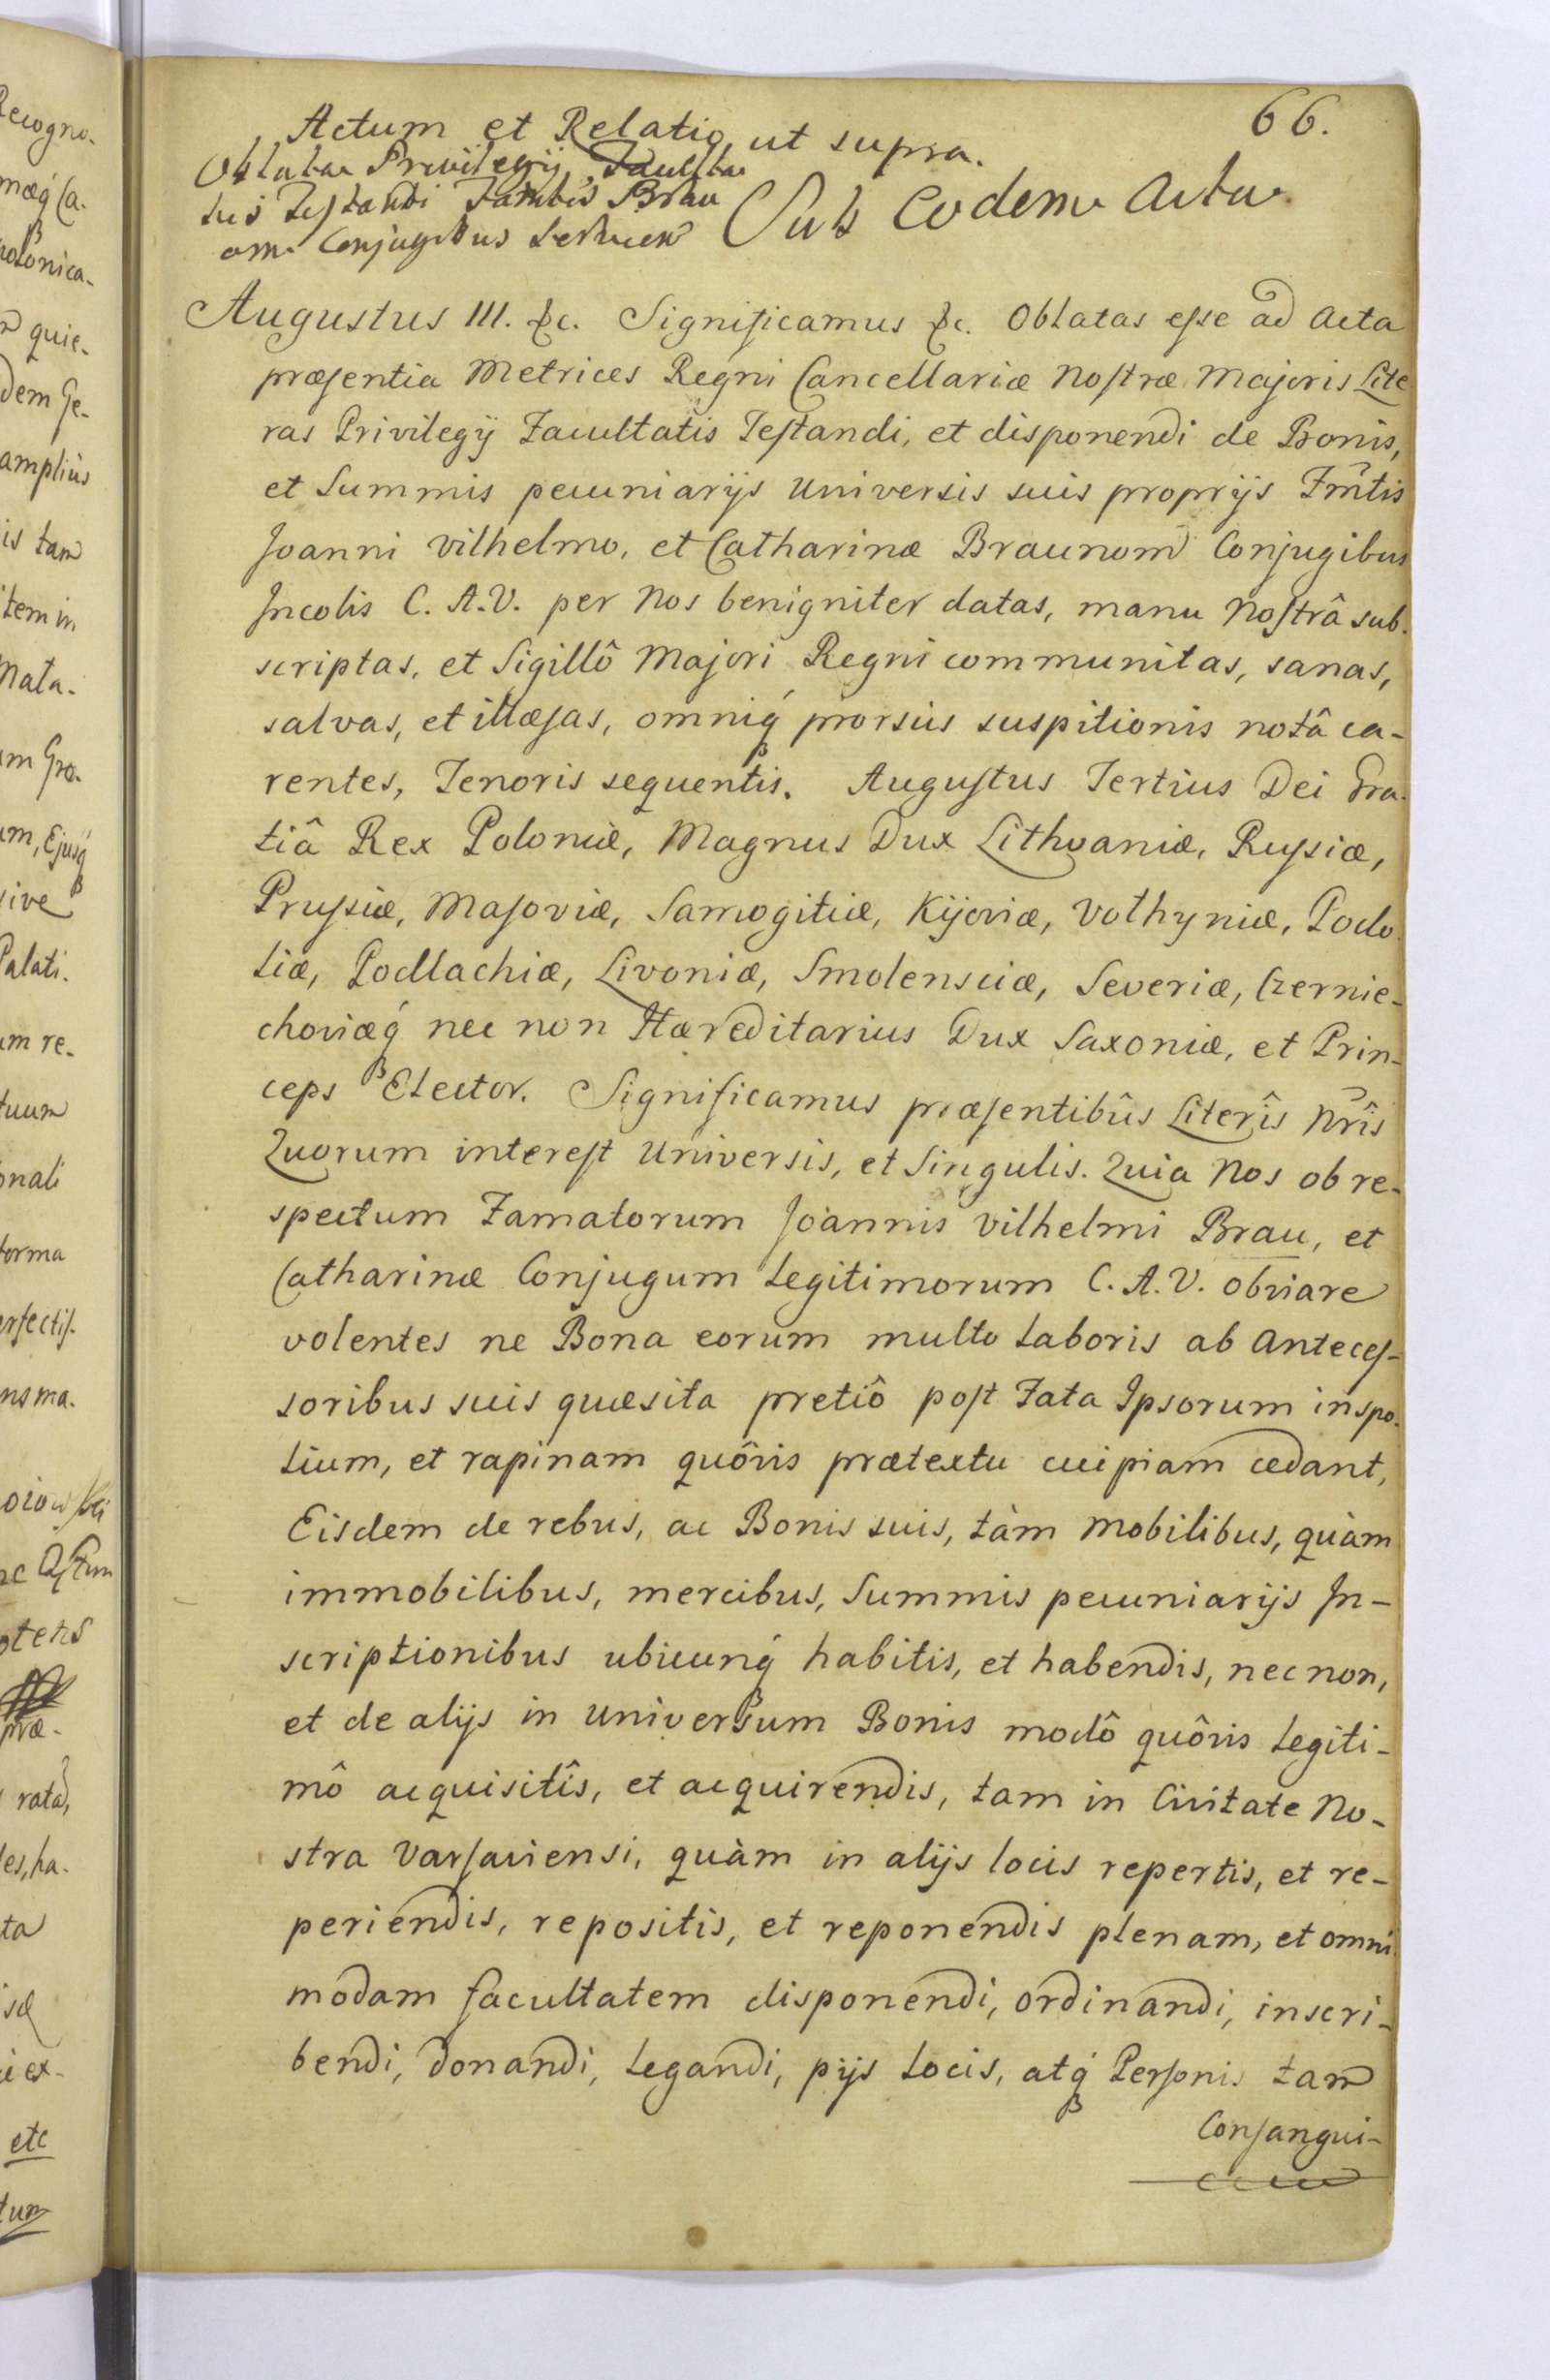 66.
Actum et Relatio ut supra.
Oblata Privilegij Faculta
tis Testandi Famtis Brau
om Conjugibus servien
Sub eodem Actu
Augustus III. &c. Significamus &c. Oblatas esse ad Acta
præsentia Metrices Regni Cancellariæ Nostræ Majoris Lite
ras Privilegij Facultatis Testandi, et disponendi de Bonis,
et Summis pecuniarijs Universis suis proprijs Fmtis
Joanni Vilhelmo, et Catharinæ Braunom Conjugibus
Incolis C. A. V. per Nos benigniter datas, manu Nostrâ sub-
scriptas, et Sigillô Majori Regni communitas, sanas,
salvas, et illæsas, omniq́ prorsùs suspitionis notâ ca-
rentes, Tenoris sequentis. Augustus Tertius Dei Gra-
tiâ Rex Poloniæ, Magnus Dux Lithvaniæ, Russiæ,
Prussiæ, Masoviæ, Samogitiæ, Kijoviæ, Volhyniæ, Podo
liæ, Podlachiæ, Livoniæ, Smolensciæ, Severiæ, Czernie-
choviæq́ nec non Hæreditarius Dux Saxoniæ, et Prin-
ceps Elector. Significamus præsentibûs Literîs Nrîs
Quorum interest Universis, et Singulis. Quia Nos ob re-
spectum Famatorum Joannis Vilhelmi Brau, et
Catharinæ Conjugum Legitimorum C. A. V. obviare
volentes ne Bona eorum multo Laboris ab Anteces-
soribus suis quæsita pretiô post Fata Ipsorum in spo-
lium, et rapinam quôvis prætextu cuipiam cedant,
Eisdem de rebus, ac Bonis suis, tàm Mobilibus, quàm
immobilibus, mercibus, Summis pecuniarijs In-
scriptionibus ubicunq́ habitis, et habendis, nec non,
et de alijs in Universum Bonis modô quôvis Legiti-
mô acquisitîs, et acquirendis, tam in Civitate No-
stra Varsaviensi, quàm in alijs locis repertis, et re-
periendis, repositis, et reponendis plenam, et omni
modam facultatem disponendi, ordinandi, inscri-
bendi, donandi, Legandi, pijs Locis, atq́ Personis tam
Consangui-